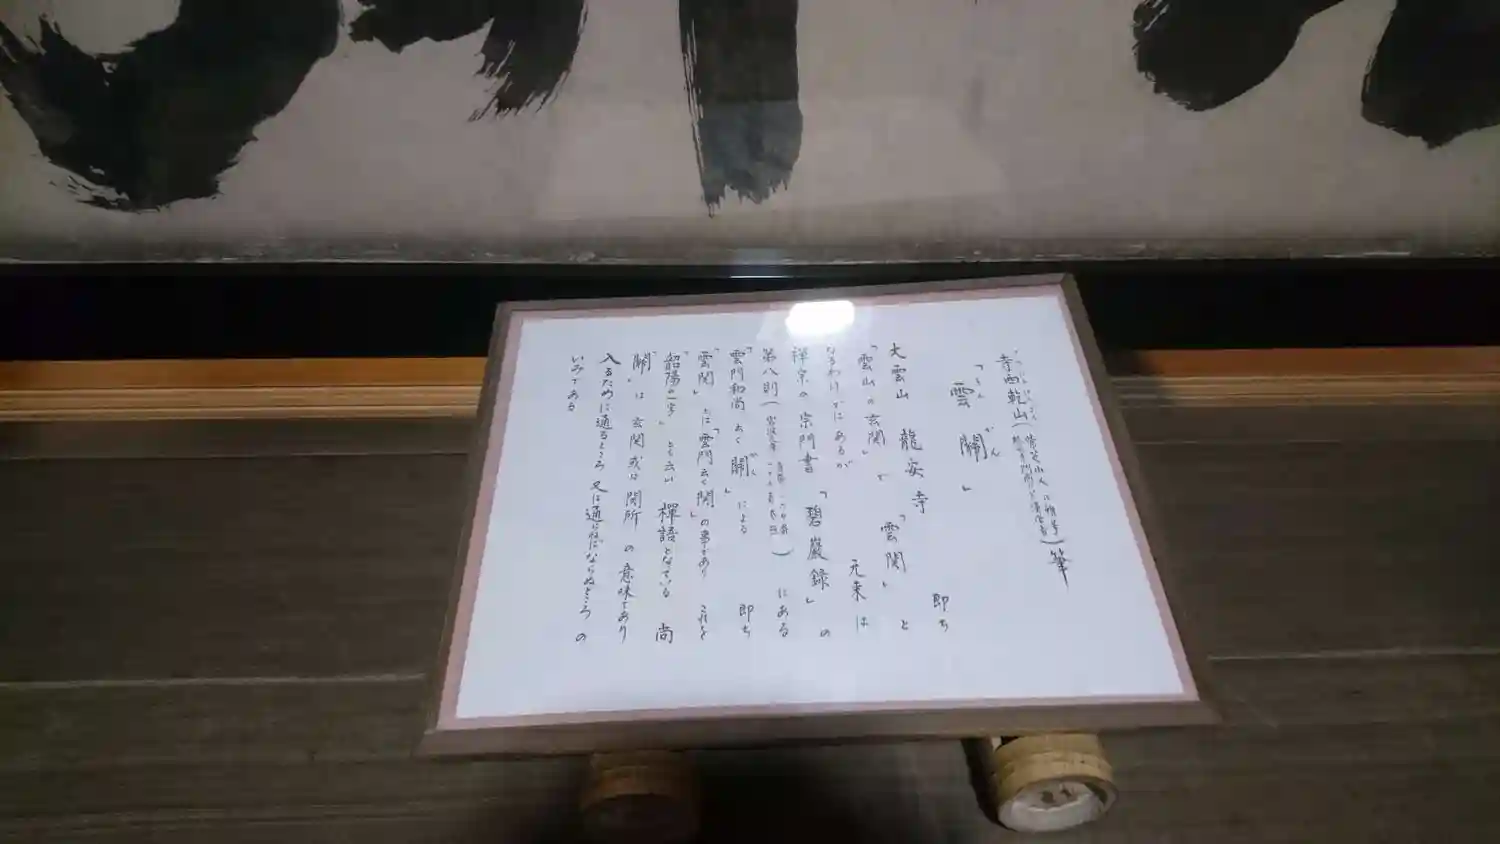 寺西乾山(
)筆
「雲関」
うん かん
即ち
大雲山 龍安寺「雲関」と
「雲山の玄関」と 元来は
なるわけにはあるが
禅宗の宗門書「碧巌録」の
第八則( ) にある
雲門和尚 曰く「関」による 即ち
「雲関」とは「雲門云く関」の事であり これを
「韶陽の一字」とも云い 禅語となっている 尚
「関」は玄関或は関所の意味であり
入るために通るところ 又は通らねばならぬところの
いみである